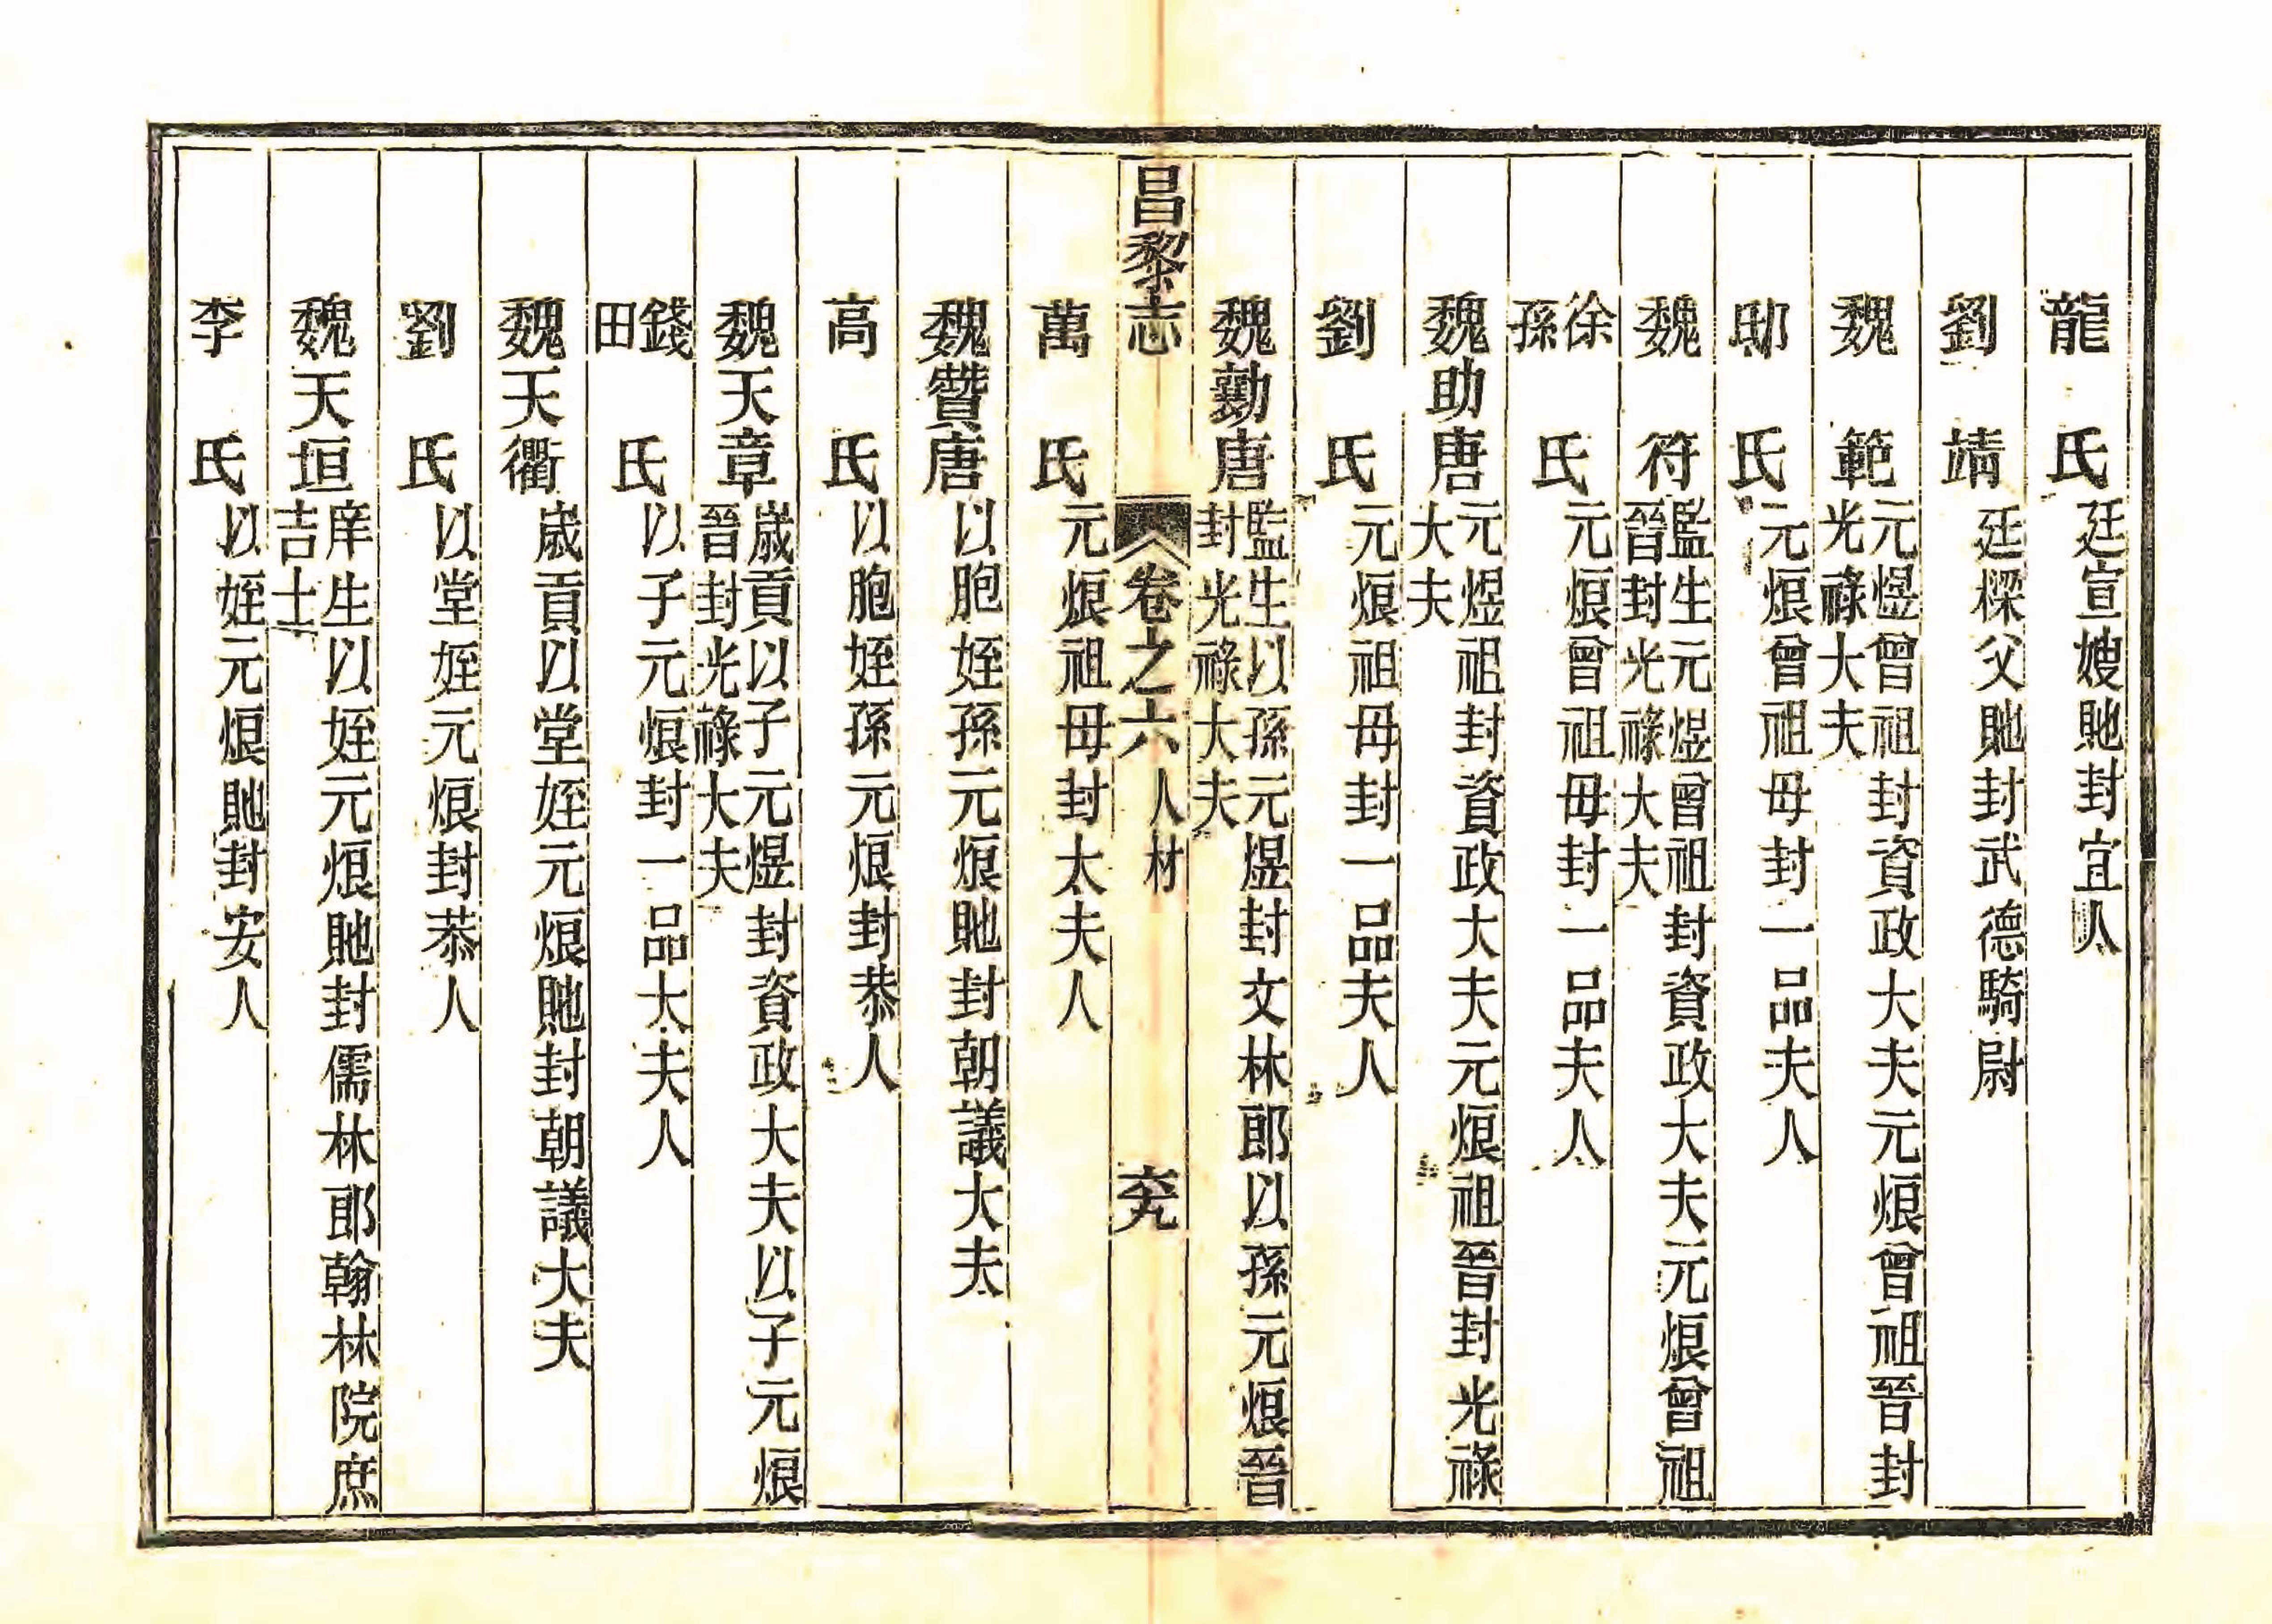 龍　氏 廷宣嫂貤封宜人
劉　靖 廷樑父貤封武德騎尉
魏　範 元煜曾祖封資政大夫元烺曾祖晉封
光祿大夫
邸　氏 元烺曾祖母封一品夫人
魏　符 監生元煜曾祖封資政大夫元烺曾祖
晉封光祿大夫
徐孫氏 元烺曾祖母封一品夫人
魏助唐 元煜祖封資政大夫元烺祖晉封光祿
大夫
劉　氏 元烺祖母封一品夫人
魏勷唐 監生以孫元煜封文林郎以孫元烺晉
封光祿大夫
昌黎志 卷之六 人材
萬　氏 元烺祖母封太夫人
魏贊唐 以胞姪孫元烺貤封朝議大夫
高　氏 以胞姪孫元烺封恭人
魏天章 歲貢以子元煜封資政大夫以子元烺
晉封光祿大夫
錢田氏 以子元烺封一品太夫人
魏天衢 歲貢以堂姪元烺貤封朝議大夫
劉　氏 以堂姪元烺封恭人
魏天垣 庠生以姪元烺貤封儒林郎翰林院庶
吉士
李　氏 以姪元烺貤封安人